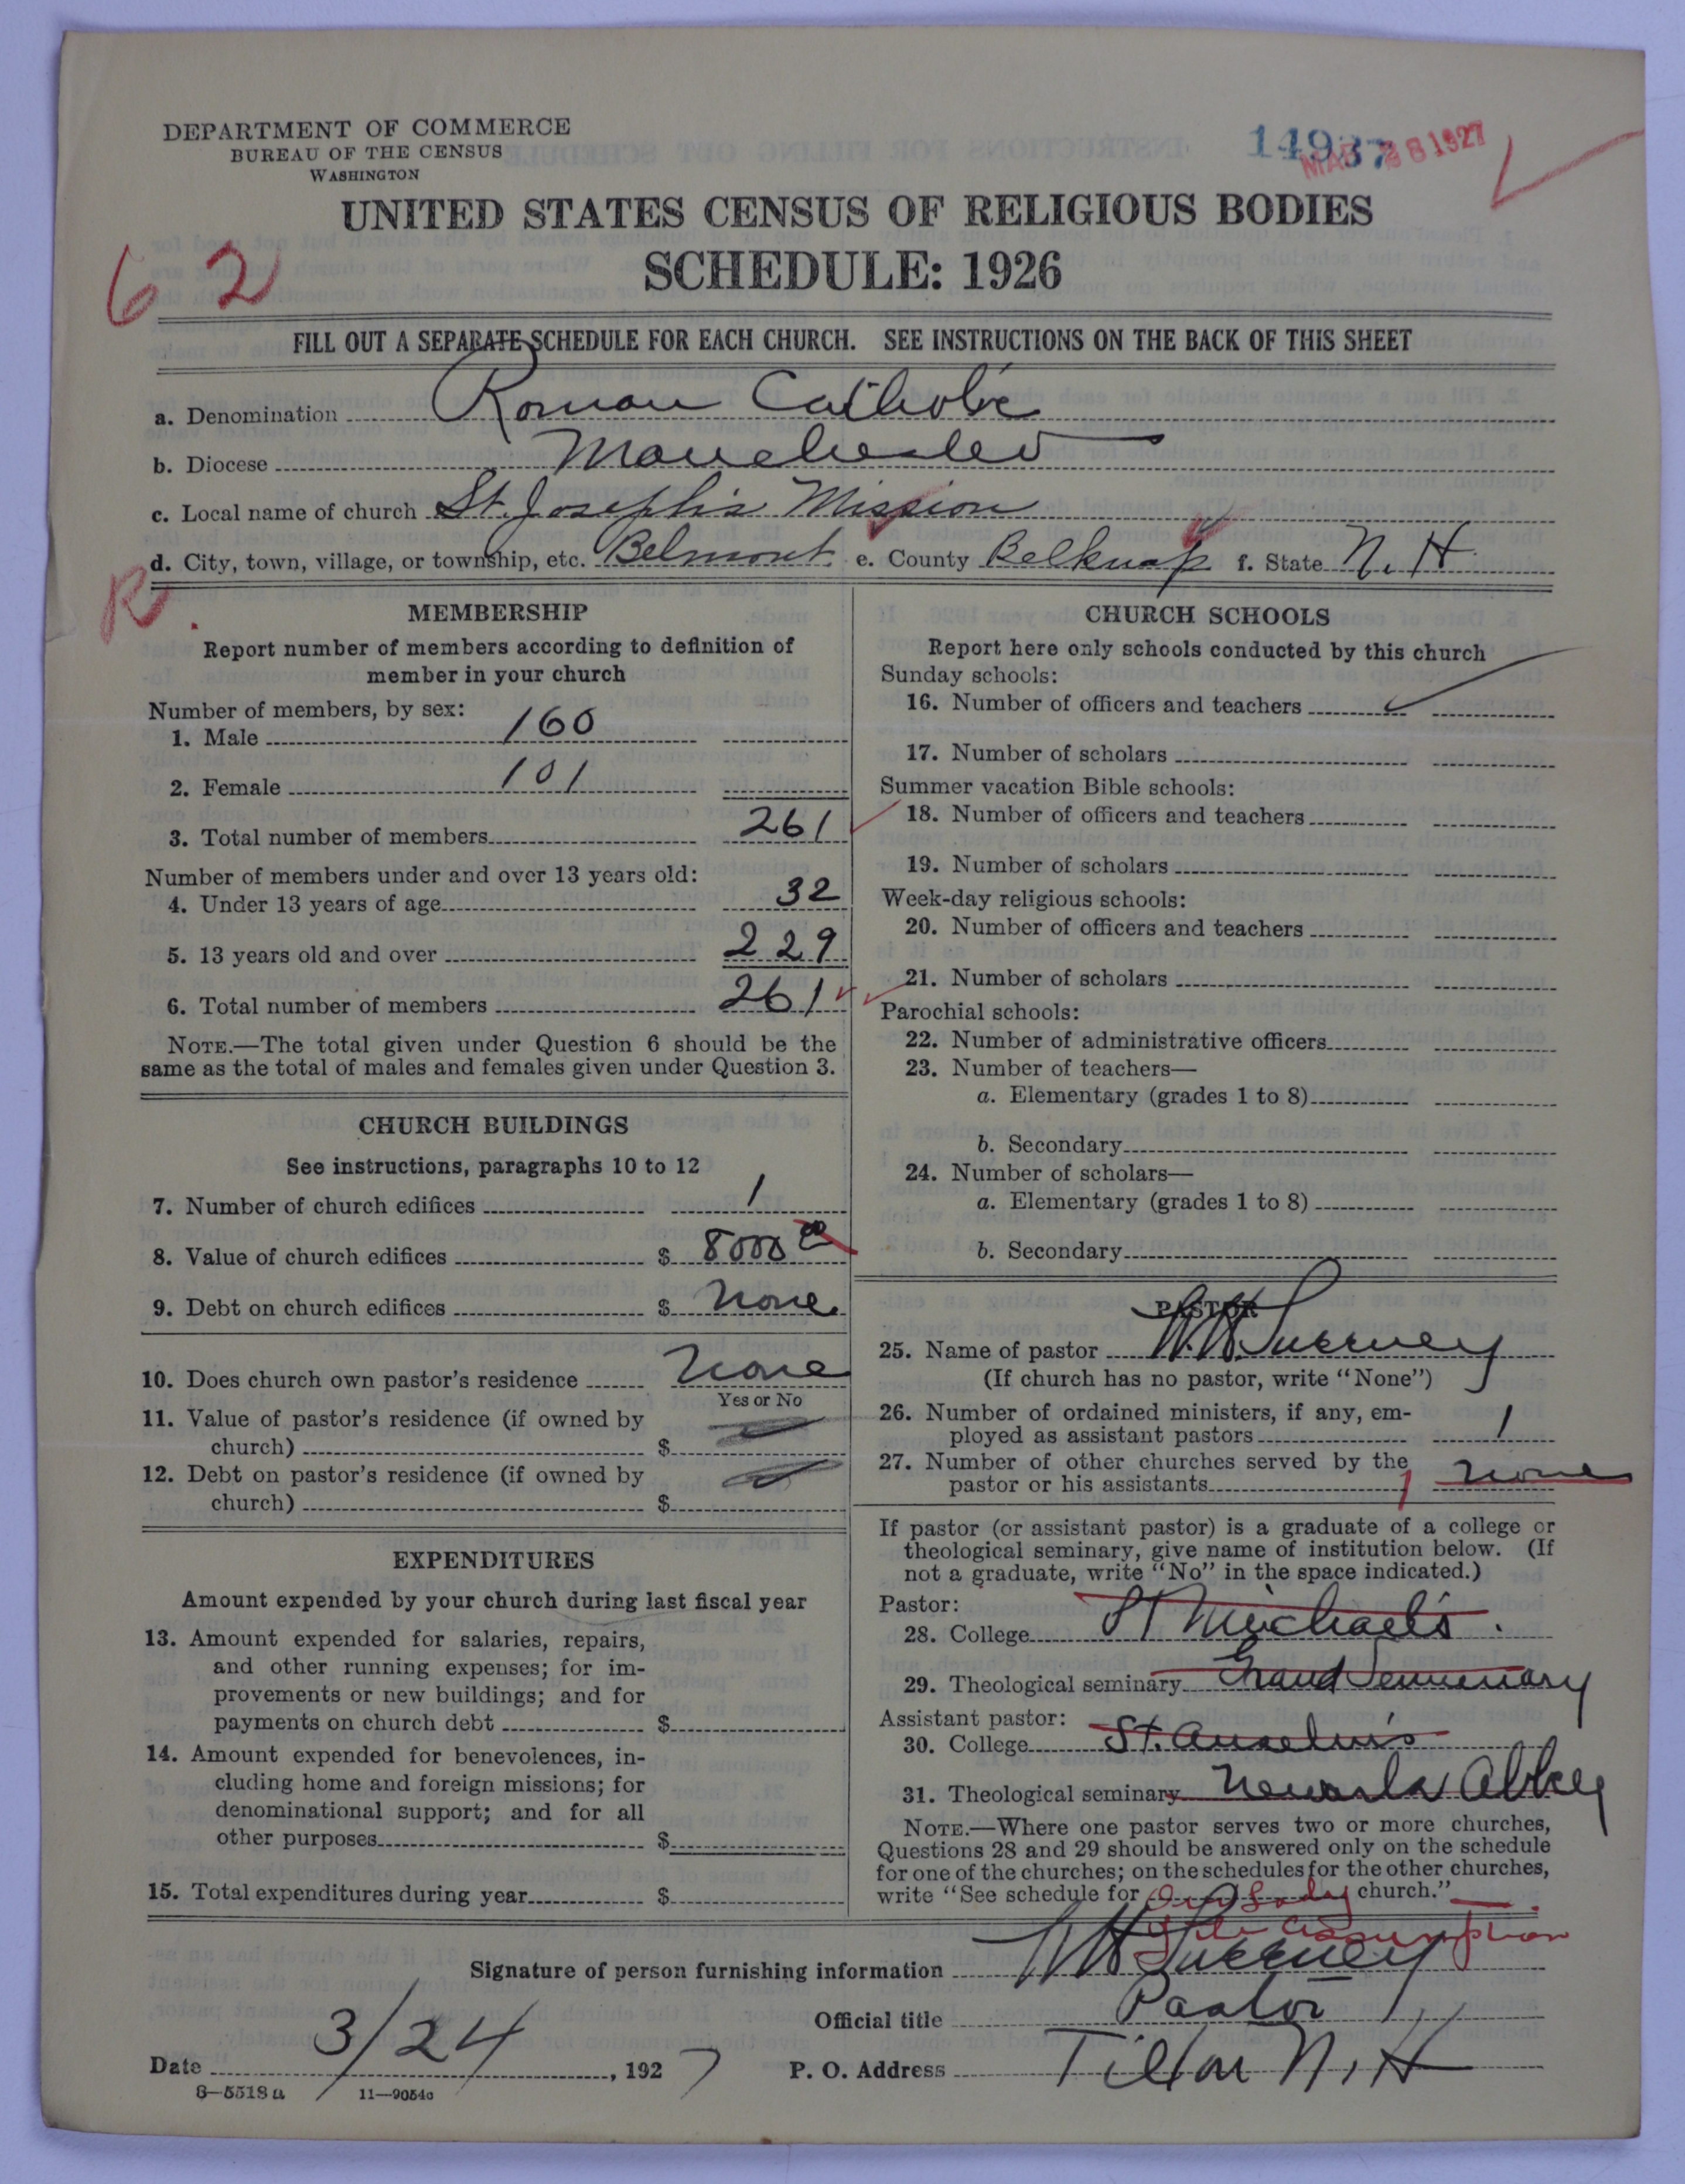 DEPARTMENT OF COMMERCE
BUREAU OF THE CENSUS
WASHINGTON
14937
MAR 28 1927
UNITED STATES CENSUS OF RELIGIOUS BODIES
SCHEDULE: 1926
62
FILL OUT A SEPARATE SCHEDULE FOR EACH CHURCH. SEE INSTRUCTIONS ON THE BACK OF THIS SHEET
a. Denomination Roman Catholic
b. Diocese Manchester
c. Local name of church St. Joseph's Mission
d. City, town, village, or township, etc. Belmont e. County Belknap f. State N. H.
R.
MEMBERSHIP
Report number of members according to definition of
member in your church
Number of members, by sex:
1. Male 160
2. Female 101
3. Total number of members 261
Number of members under and over 13 years old:
4. Under 13 years of age 32
5. 13 years old and over 229
6. Total number of members 261
NOTE.—The total given under Question 6 should be the
same as the total of males and females given under Question 3.
CHURCH BUILDINGS
See instructions, paragraphs 10 to 12
7. Number of church edifices 1
8. Value of church edifices $ 8000 00
9. Debt on church edifices $ None
10. Does church own pastor's residence None
Yes or No
11. Value of pastor's residence (if owned by
church) $
12. Debt on pastor's residence (if owned by
church) $
EXPENDITURES
Amount expended by your church during last fiscal year
13. Amount expended for salaries, repairs,
and other running expenses; for im-
provements or new buildings; and for
payments on church debt $
14. Amount expended for benevolences, in-
cluding home and foreign missions; for
denominational support; and for all
other purposes $
15. Total expenditures during year $
CHURCH SCHOOLS
Report here only schools conducted by this church
Sunday schools:
16. Number of officers and teachers
17. Number of scholars
Summer vacation Bible schools:
18. Number of officers and teachers
19. Number of scholars
Week-day religious schools:
20. Number of officers and teachers
21. Number of scholars
Parochial schools:
22. Number of administrative officers
23. Number of teachers—
a. Elementary (grades 1 to 8)
b. Secondary
24. Number of scholars—
a. Elementary (grades 1 to 8)
b. Secondary
PASTOR
25. Name of pastor W. H. Sweeney
(If church has no pastor, write "None")
26. Number of ordained ministers, if any, em-
ployed as assistant pastors 1
27. Number of other churches served by the
pastor or his assistants 1 none
If pastor (or assistant pastor) is a graduate of a college or
theological seminary, give name of institution below. (If
not a graduate, write "No" in the space indicated.)
Pastor:
28. College St Michael's.
29. Theological seminary Grand Seminary
Assistant pastor:
30. College St. Anselm's
31. Theological seminary Newark Abbey
NOTE.—Where one pastor serves two or more churches,
Questions 28 and 29 should be answered only on the schedule
for one of the churches; on the schedules for the other churches,
write "See schedule for Our Lady church."
of the Assumption
Signature of person furnishing information W H Sweeney
Official title Pastor
Date 3/24, 1927 P. O. Address Tilton N. H
8—5518 a 11—9054a